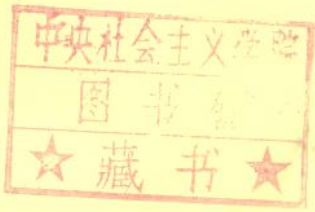 中央社会主义学院
图书馆
☆ 藏书 ★